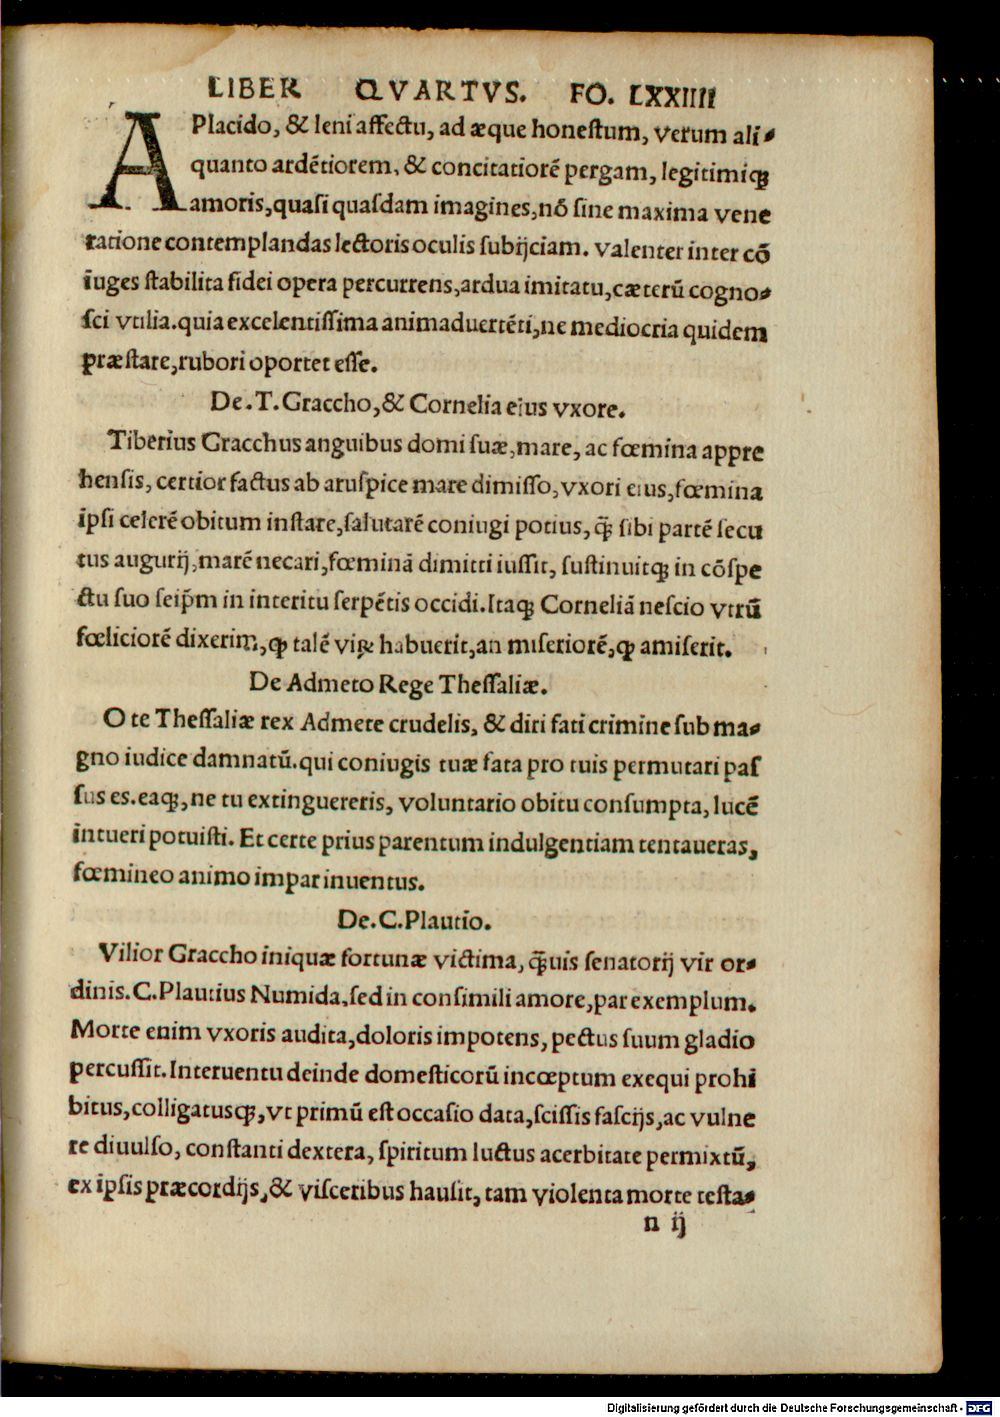 LIBER QVARTVS. FO. LXXIIII
A Placido, & leni affectu, ad æque honeſtum, verum ali⸗
quanto ardētiorem, & concitatiorē pergam, legitimiqꝫ
amoris, quaſi quaſdam imagines, nō ſine maxima vene
ratione contemplandas lectoris oculis ſubijciam. valenter inter cō
iuges ſtabilita fidei opera percurrens, ardua imitatu, cæterū cogno⸗
ſci vtilia. quia excelentiſſima animaduertēti, ne mediocria quidem
præſtare, rubori oportet eſſe.
De. T. Graccho, & Cornelia eius vxore.
Tiberius Gracchus anguibus domi ſuæ, mare, ac fœmina appre
henſis, certior factus ab aruſpice mare dimiſſo, vxori eius, fœmina
ipſi celerē obitum inſtare, ſalutarē coniugi potius, q̄ ſibi partē ſecu
tus augurij, marē necari, fœminā dimitti iuſſit, ſuſtinuitqꝫ in cōſpe
ctu ſuo ſeip̄m in interitu ſerpētis occidi. Itaqꝫ Corneliā neſcio vtrū
fœliciorē dixerim, ꝙ talē viꝝ habuerit, an miſeriorē, ꝙ amiſerit.
De Admeto Rege Theſſaliæ.
O te Theſſaliæ rex Admete crudelis, & diri fati crimine ſub ma⸗
gno iudice damnatū. qui coniugis tuæ fata pro tuis permutari paſ
ſus es. eaqꝫ, ne tu extinguereris, voluntario obitu conſumpta, lucē
intueri potuiſti. Et certe prius parentum indulgentiam tentaueras,
fœmineo animo impar inuentus.
De. C. Plautio.
Vilior Graccho iniquæ fortunæ victima, q̄uis ſenatorij vir or⸗
dinis. C. Plautius Numida, ſed in conſimili amore, par exemplum.
Morte enim vxoris audita, doloris impotens, pectus ſuum gladio
percuſſit. Interuentu deinde domeſticorū incœptum exequi prohi
bitus, colligatusqꝫ, vt primū eſt occaſio data, ſciſſis faſcijs, ac vulne
re diuulſo, conſtanti dextera, ſpiritum luctus acerbitate permixtū,
ex ipſis præcordijs, & viſceribus hauſit, tam violenta morte teſta⸗
n ij
Digitalisierung gefördert durch die Deutsche Forschungsgemeinschaft - DFG